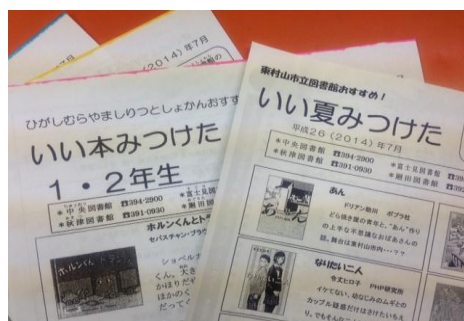 (2014)年7月
ひがしむらやましりつとしょかんおすす
いい本みつけた
1・2年生
*中央図書館 ☎394-2900
*富士見図
*秋津図書館 ☎391-0930
*廻田図
ホルンくんと
セバスチャン・ブラウ
ホルンくん
ショベル
くん。大き
かほりだ
ほかのく
だって
東村山市立図書館おすすめ!
いい夏みつけた
平成26(2014)年7月
*中央図書館 ☎394-2900
*富士見図書館
*秋津図書館 ☎391-0930
*廻田図書館
あん
ドリアン助川 ポプラ社
どら焼き屋の青年と、"あん"作り
の上手な不思議なおばあさんの
話。舞台は東村山市内・・・??
なりたい二人
令丈ヒロ子 PHP研究所
イケてない、幼なじみのムギとの
カップル疑惑だけはさけたいちえ
り。でもそん